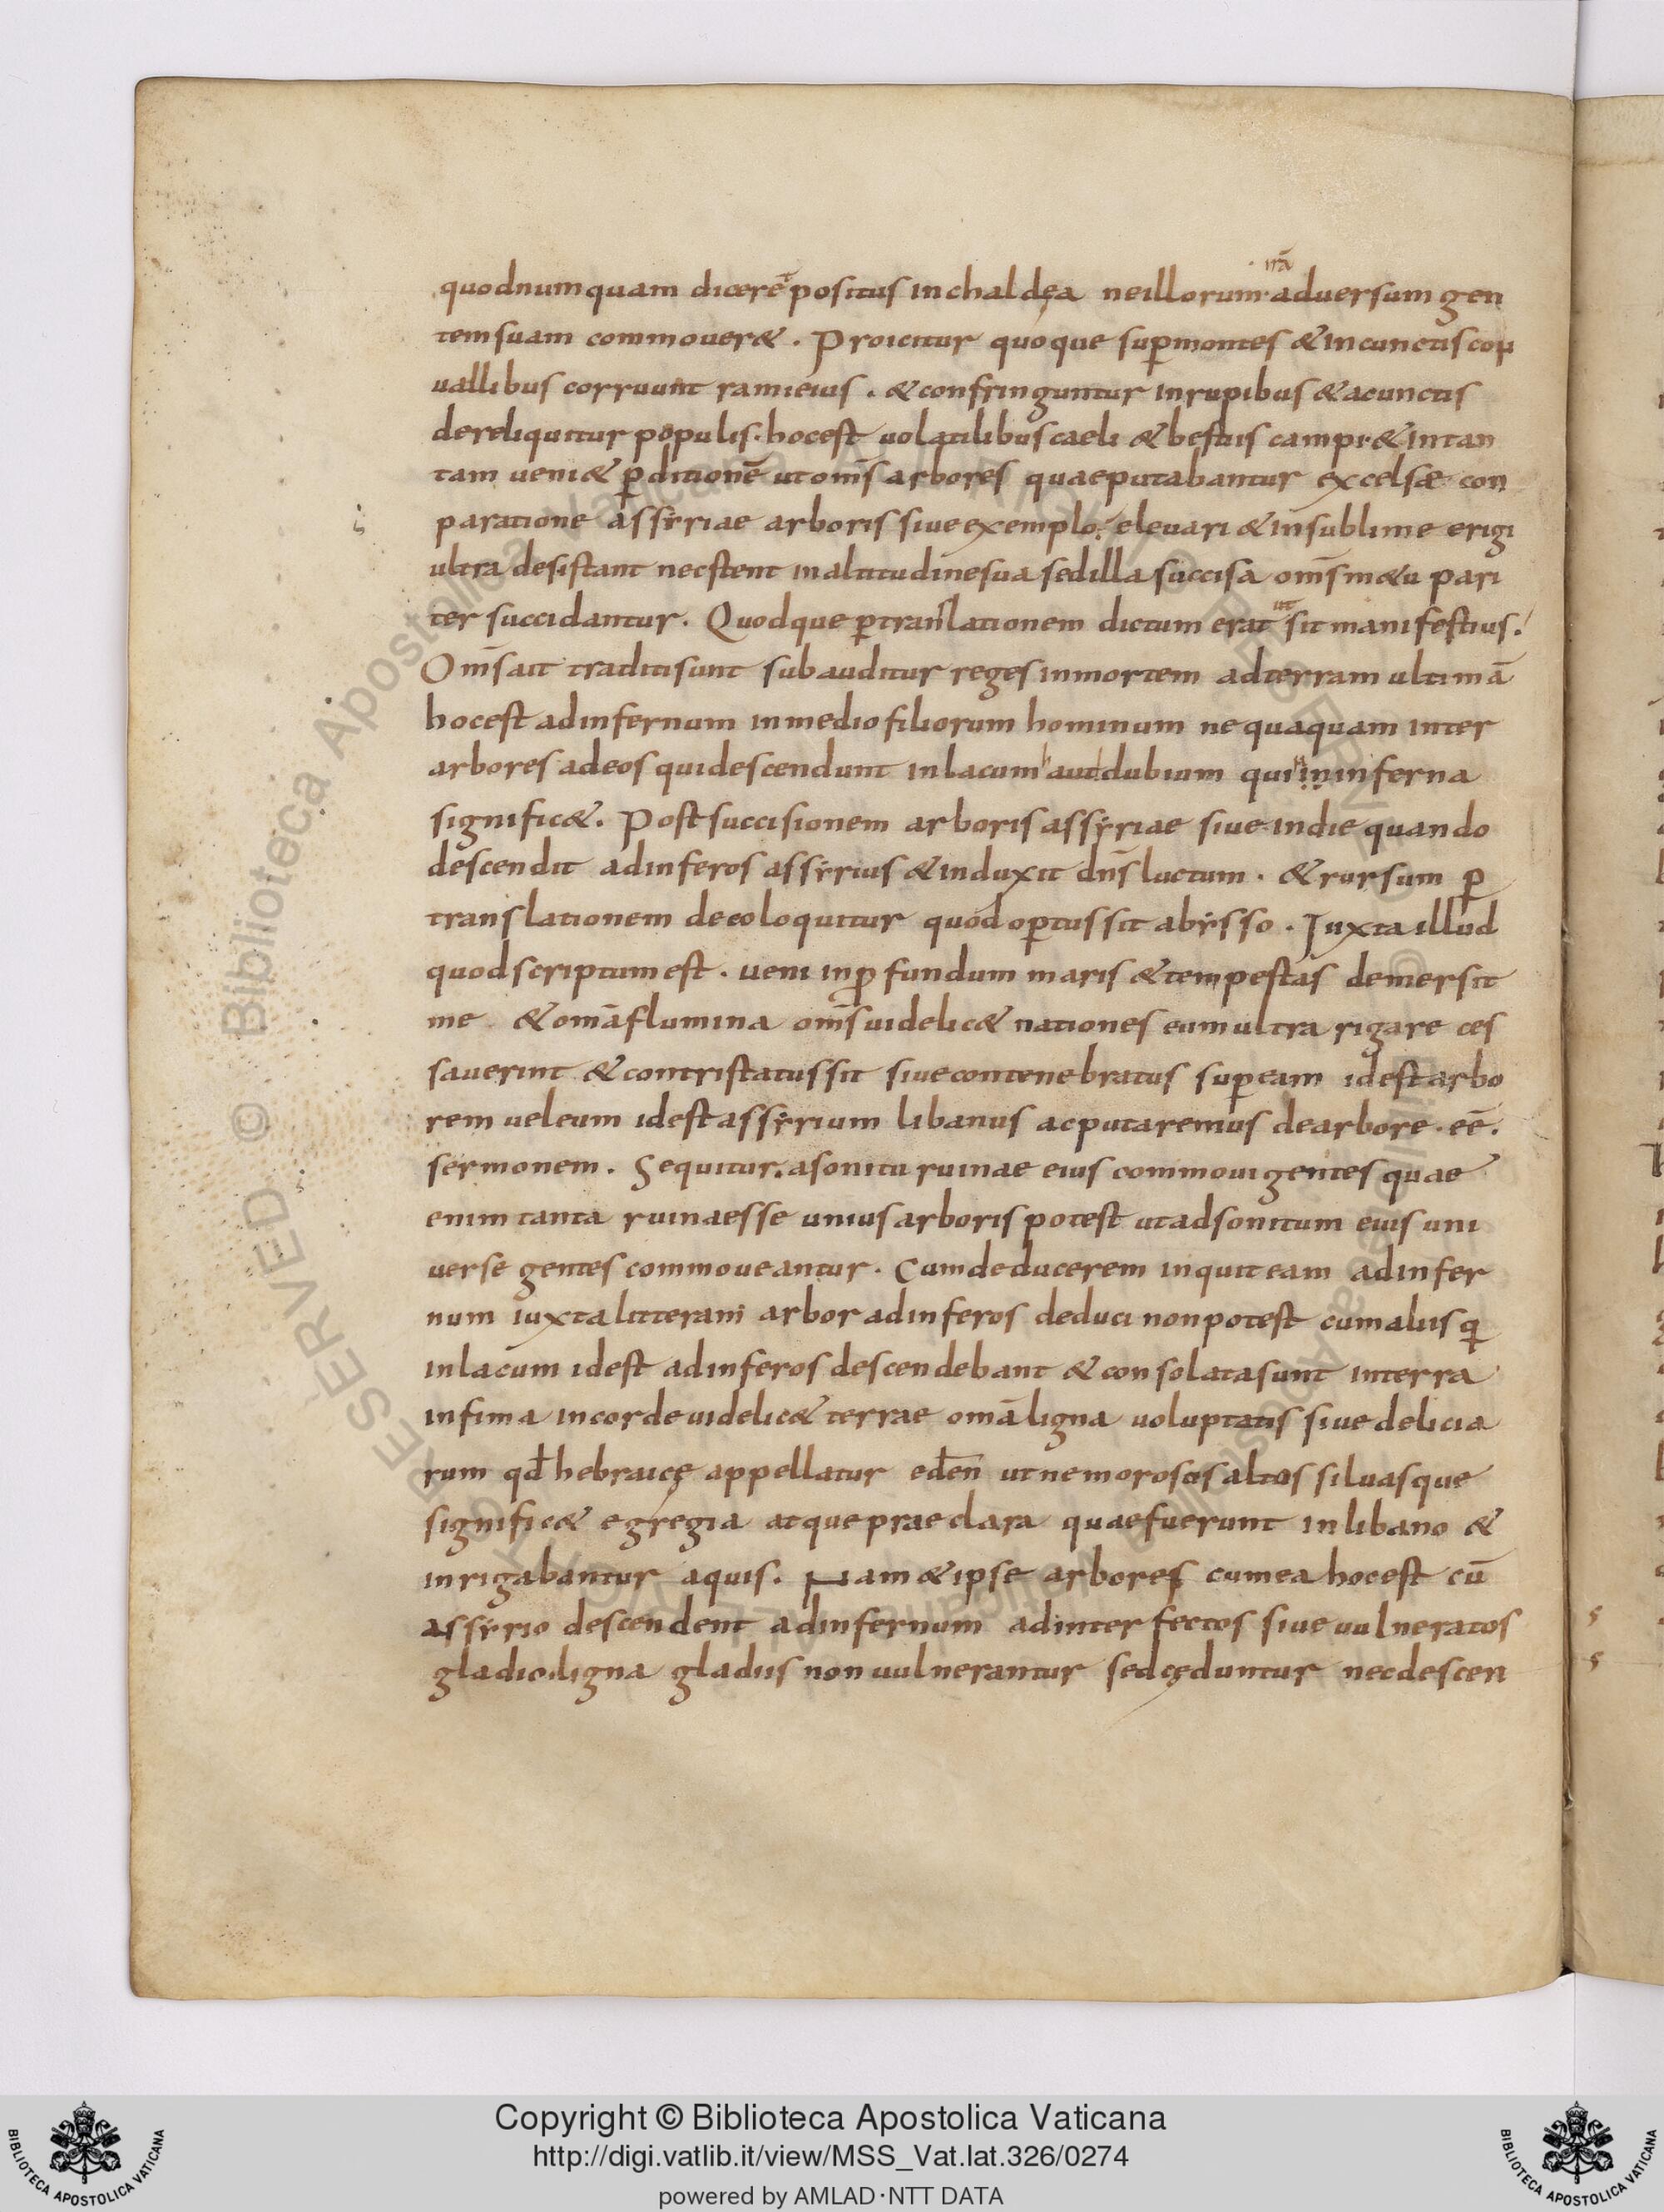 quodnumquam dicerē positus inchaldęa neillorum irā aduersum gen
temsuam commouer&. Proicitur quoque sup̄montes &incunctiscon
uallibus corruunt ramieius. &confringuntur inrupibus &acunctis
dereliquitur populis. hocest uolatilibus caeli &bestiis campi. &intan
tam ueni& p̄ditionē utom̄s arbores quaeputabantur excelsæ con
paratione assẏriae arboris siueexemplo. eleuari &insublime erigi
ultra desistant necstent inaltitudinesua sedilla succisa om̄s m&u pari
ter succidantur. Quodque p̄translationem dictum erat ut sit manifestius.
Om̄sait traditisunt subauditur reges inmortem adterram ultimā
hocest adinfernum inmedio filiorum hominum nequaquam inter
arbores adeos quidescendunt inlacum haut dubium quin ininferna
signific&. Postsuccisionem arboris assẏriae siue indie quando
descendit adinferos assẏrius &induxit dn̄s luctum. &rursum p̄
translationem deeoloquitur quod op̄tussit abẏsso. Juxta illud
quodscriptumest. ueni inp̱fundum maris &tempestas demersit
me &omāflumina om̄suidelic& nationes eumultra rigare ces
sauerint &contristatussit siuecontenebratus sup̄eam idestarbo
rem ueleum idestassẏrium libanus acputaremus dearbore. eē.
sermonem. Sequitur. asonitu ruinae eius commouigentes quae
enim tanta ruinaesse uniusarboris potest utadsonitum eius uni
uerse gentes commoueantur. Cumdeducerem inquiteam adinfer
num iuxtalitteram arbor adinferos deduci nonpotest cumaliis q̄
inlacum idest adinferos descendebant &consolatasunt interra
infima incordeuidelic& terrae omāligna uoluptatis siuedelicia
rum qd̄ hebraicę appellatur ed̄en utnemorosos altos siluasque
signific& egregia atquepraeclara quaefuerunt inlibano &
inrigabantur aquis. Nam&ipse arbores cumea hocest cū
assẏrio descendent adinfernum adinterfectos siueuulneratos
gladio.ligna gladiis nonuulnerantur sedcęduntur necdescen
Copyright © Biblioteca Apostolica Vaticana
http://digi.vatlib.it/view/MSS_Vat.lat.326/0274
powered by AMLAD·NTT DATA
BIBLIOTECA APOSTOLICA VATICANA
BIBLIOTECA APOSTOLICA VATICANA